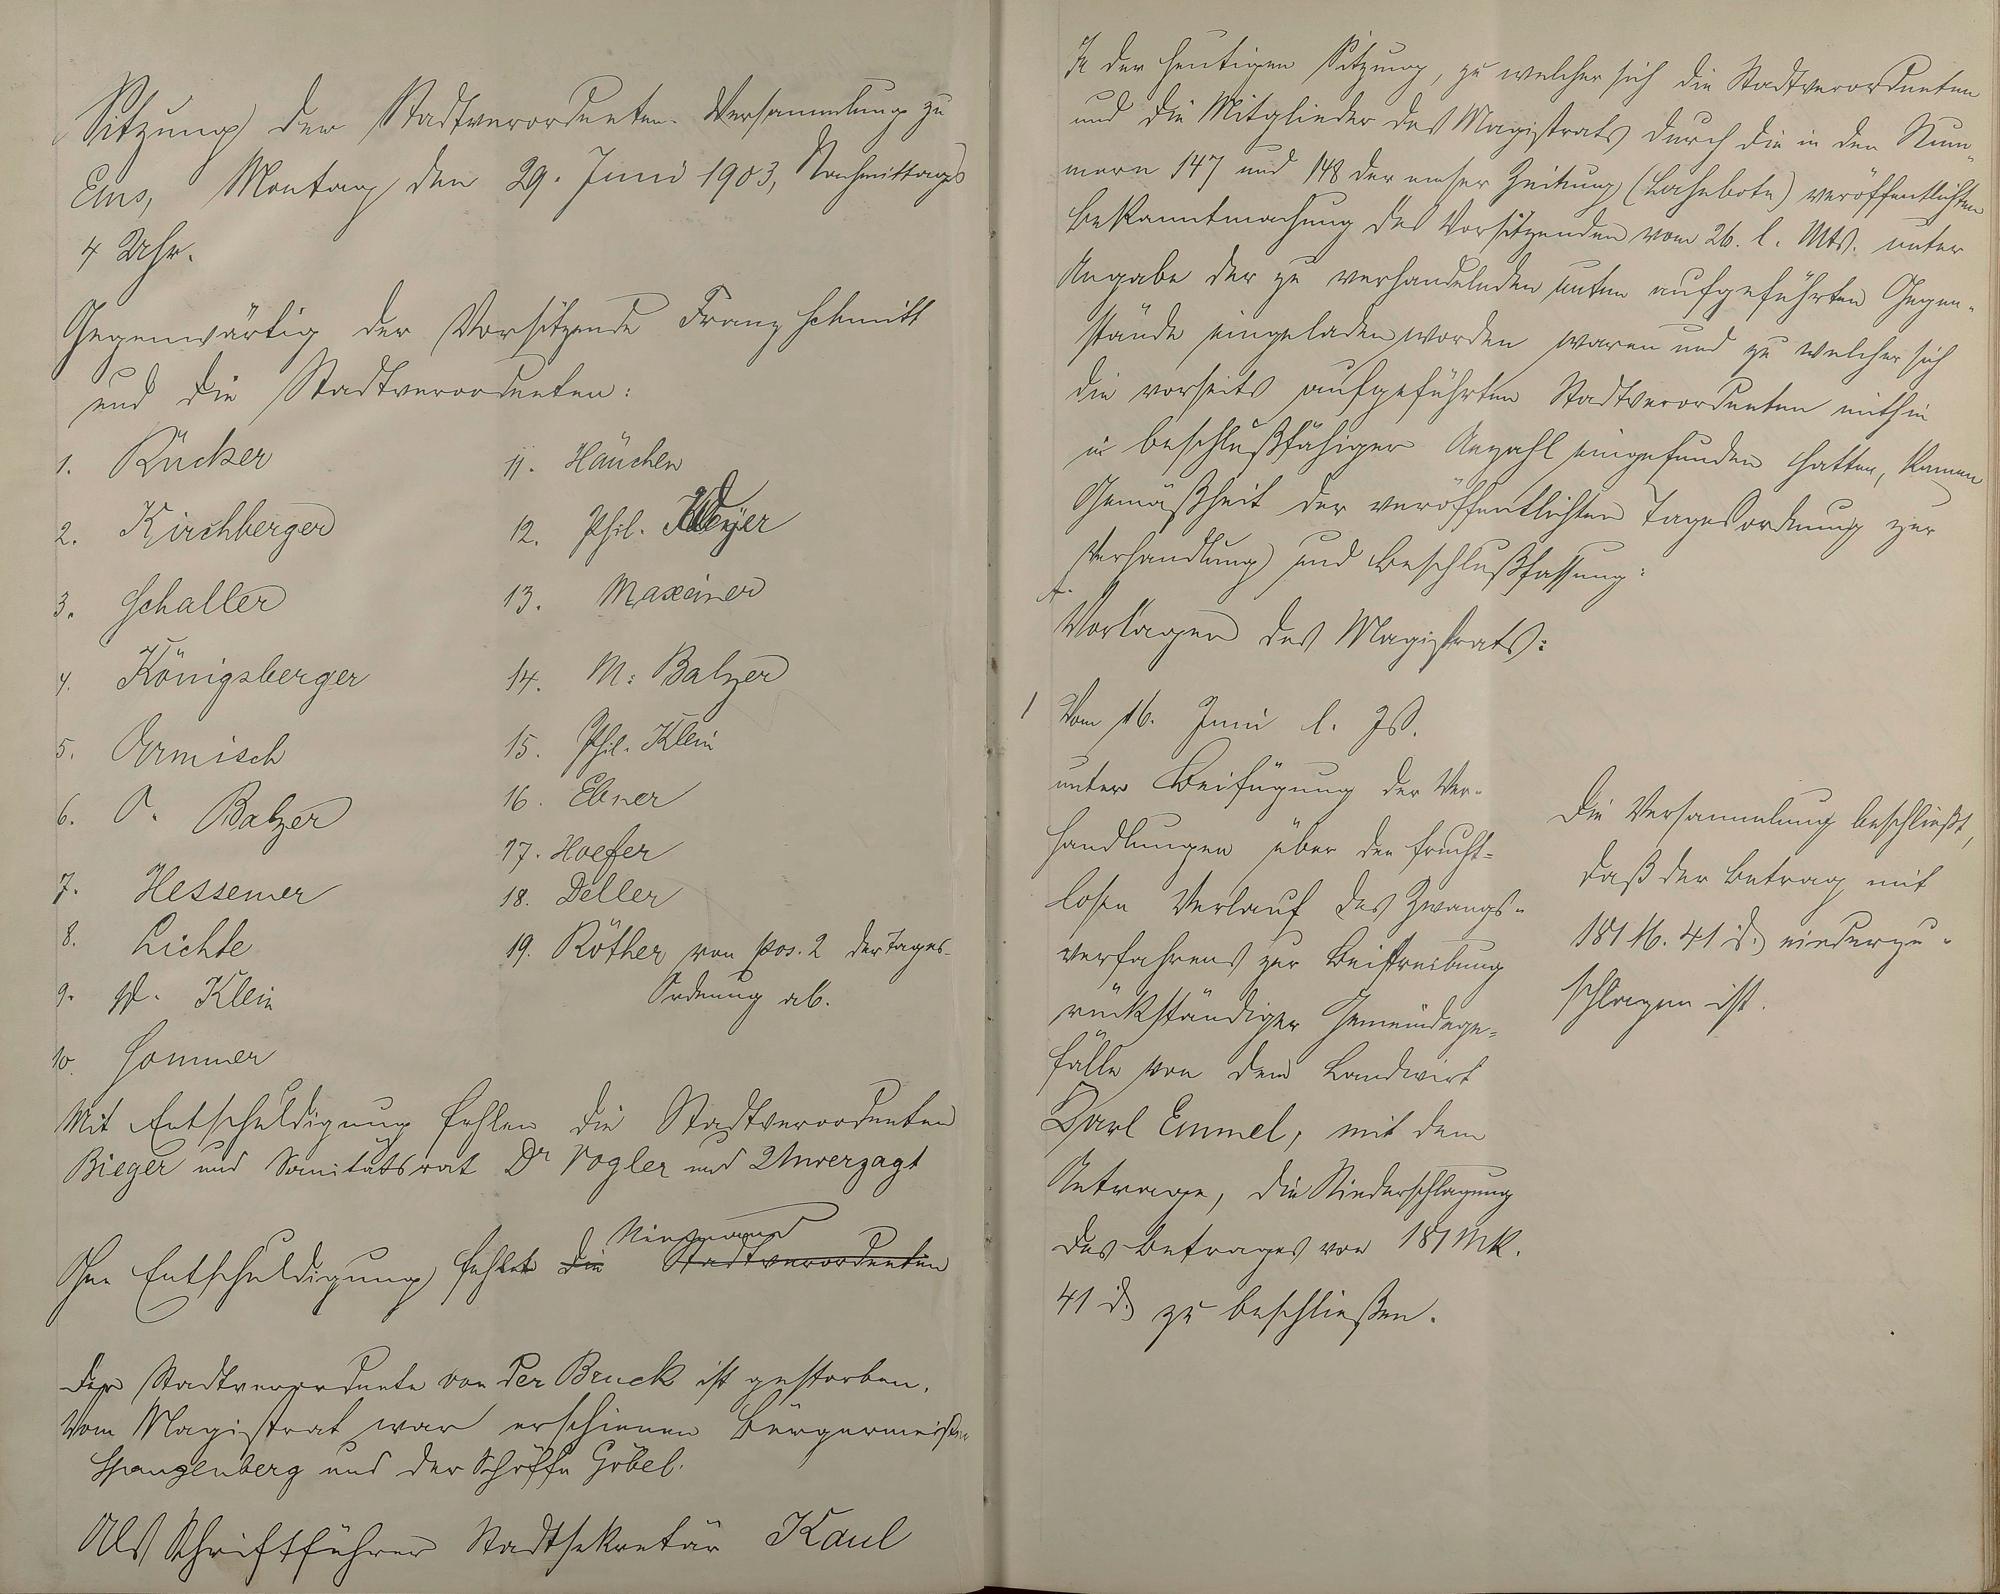 Sitzung der Stadtverordneten-Versammlung zu
Ems, Montag den 29. Juni 1903, Nachmittags
4 Uhr.
Gegenwärtig der Vorsitzende Franz Schmitt
und die Stadtverordneten:
1. Rücker
2. Kirchberger
3. Schaller
4. Königsberger
5. Ormisch
6. O. Balzer
7. Hessemer
8. Lichte
9. W. Klein
10. Sommer
11. Häuchen
12. Phil. Weyer
13. Maxeiner
14. M. Balzer
15. Phil. Klein
16. Ebner
17. Hoefer
18. Deller
19. Röther von Pos. 2 der Tages-
Ordnung ab.
Mit Entschuldigung fehlen die Stadtverordneten
Bieger und Sanitätsrat Dr Vogler und Unverzagt
Niemand
Ohne Entschuldigung fehlt die Stadtverordneten
Der Stadtverordnete von der Bruck ist gestorben.
Vom Magistrat war erschienen Bürgermeister
Spangenberg und der Schöffe Göbel.
Als Schriftführer Stadtsekretär Kaul
In der heutigen Sitzung, zu welcher sich die Stadtverordneten
und die Mitglieder des Magistrats durch die in den Num-
mern 147 und 148 der emser Zeitung (Lahnbote) veröffentlichten
Bekanntmachung des Vorsitzenden vom 26. l. Mts. unter
Angabe der zu verhandelnden unten aufgeführten Gegen-
stände eingeladen worden waren und zu welcher sich
die vorseits aufgeführten Stadtverordneten mithin
in beschlußfähiger Anzahl eingefunden hatten, kamen
Gemäßheit der veröffentlichten Tagesordnung zur
Verhandlung und Beschlußfassung:
A.
Vorlagen des Magistrats:
1 Vom 16. Juni l. Js.
unter Beifügung der Ver-
handlungen über den frucht-
losen Verlauf des Zwangs-
verfahrens zur Beitreibung
rückständiger Gemeindege-
fälle von dem Landwirt
Karl Emmel, mit dem
Antrage, die Niederschlagung
des Betrages von 181 Mk.
41 d. zu beschließen.
Die Versammlung beschließt,
daß der Betrag mit
181 M. 41 d. niederzu-
schlagen ist.